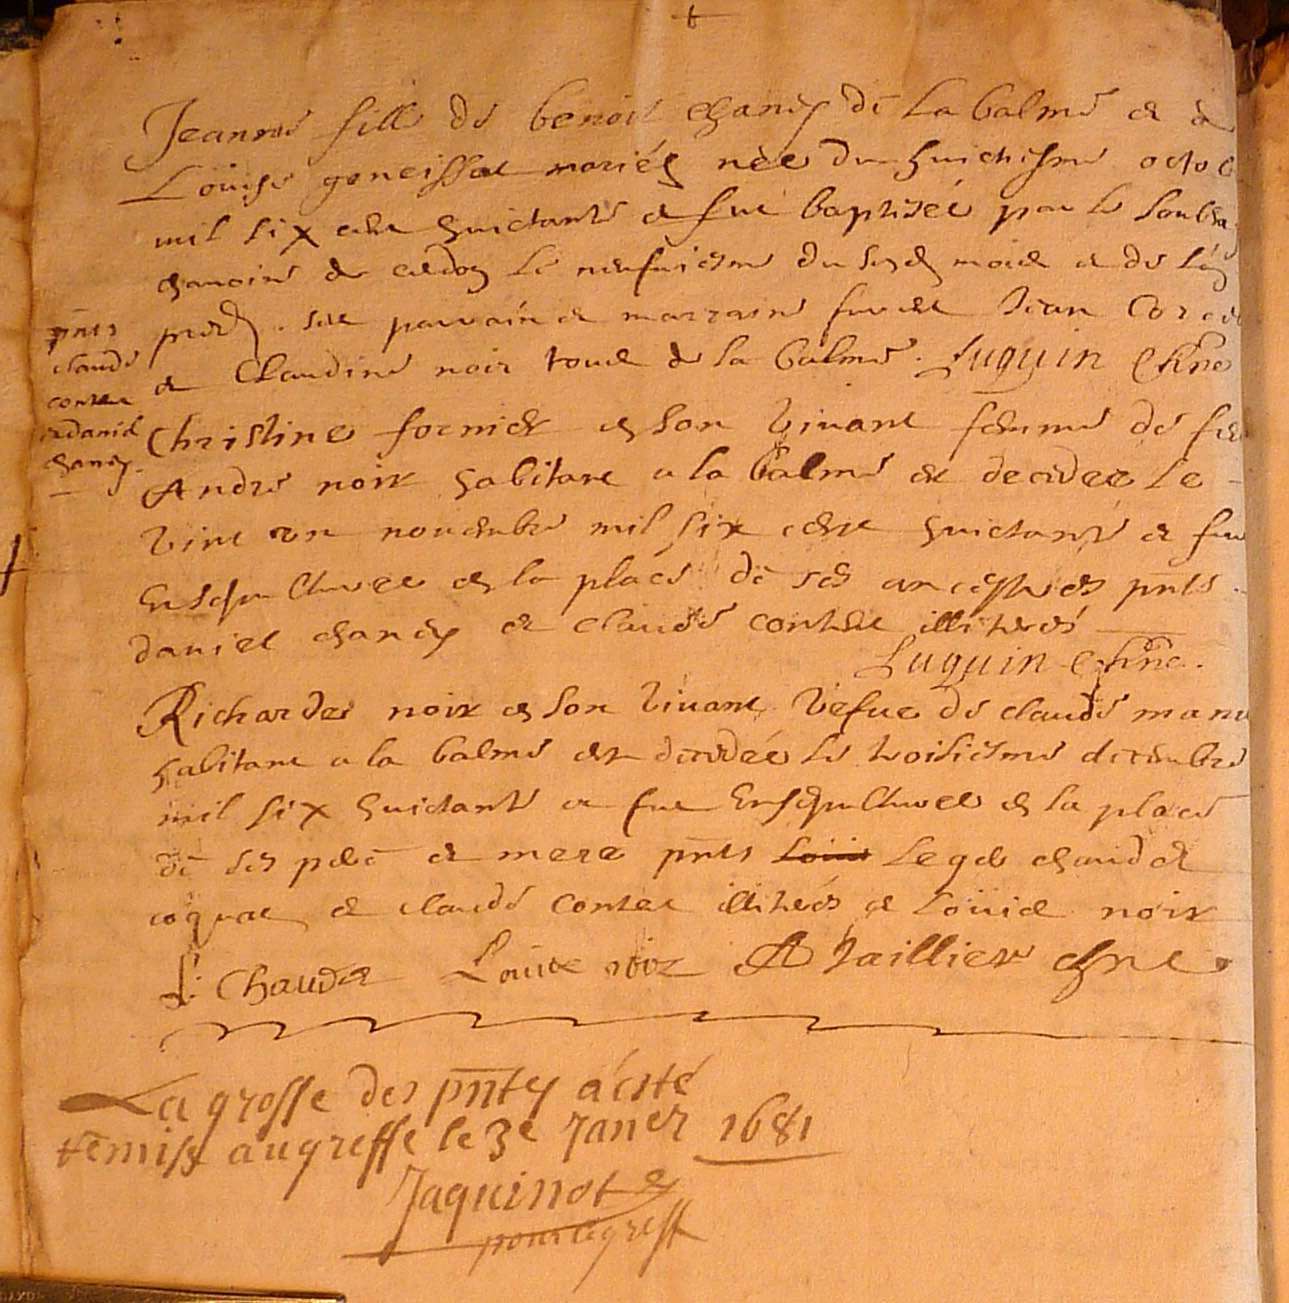 Jeanne fille de benoit chaney de La balme et de
Louyse geneissat mariés née du huictiesme octob
mil six cent huictante et fut baptisée par le soubs
chanoine de le neufuiesme du susd mois et de l'an
pred. son parrain et marrayne furent Jean
et Claudine noir tous de la balme. Luquin chne
pnts
claude
contet
et daniel
chaney
Christine fornier en son viuant femme de feu
Andre noir habitant a la balme est decedee le
vint un nouembre mil six cent huictante et fut
Ensepulturee en la place de ses ancestres pnts
daniel chaney et claude contet illiterés
Luquin chne.
Richarde noir en son viuant vefue de claude
habitant a la balme est decedée le troisiesme decembre
mil six huictante et fut Ensepulturee en la place
de ses pere et mere pnts chaudet
et claude contet illiterés et Loüis noir
Chaudet Louise noir A taillier chne
La grosse des pntes a esté
remise au greffe le 3e Janer 1681
Jaquinot
pour le greff